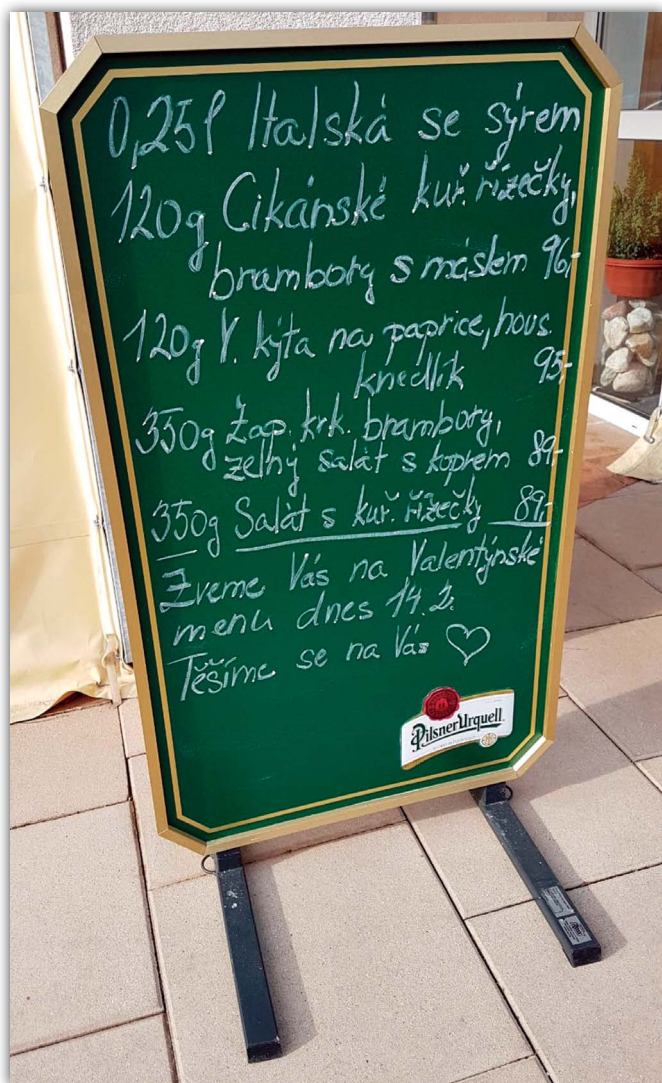 0,25l Italská se sýrem
120g Cikánské kuř. řízečky,
brambory s máslem 96,-
120g V. kýta na paprice, hous.
knedlík 95,-
350g Zap. krk. brambory,
zelný salát s koprem 89,-
350g Salát s kuř. řízečky 89,-
Zveme Vás na Valentýnské
menu dnes 14.2.
Těšíme se na Vás ♡
Pilsner Urquell